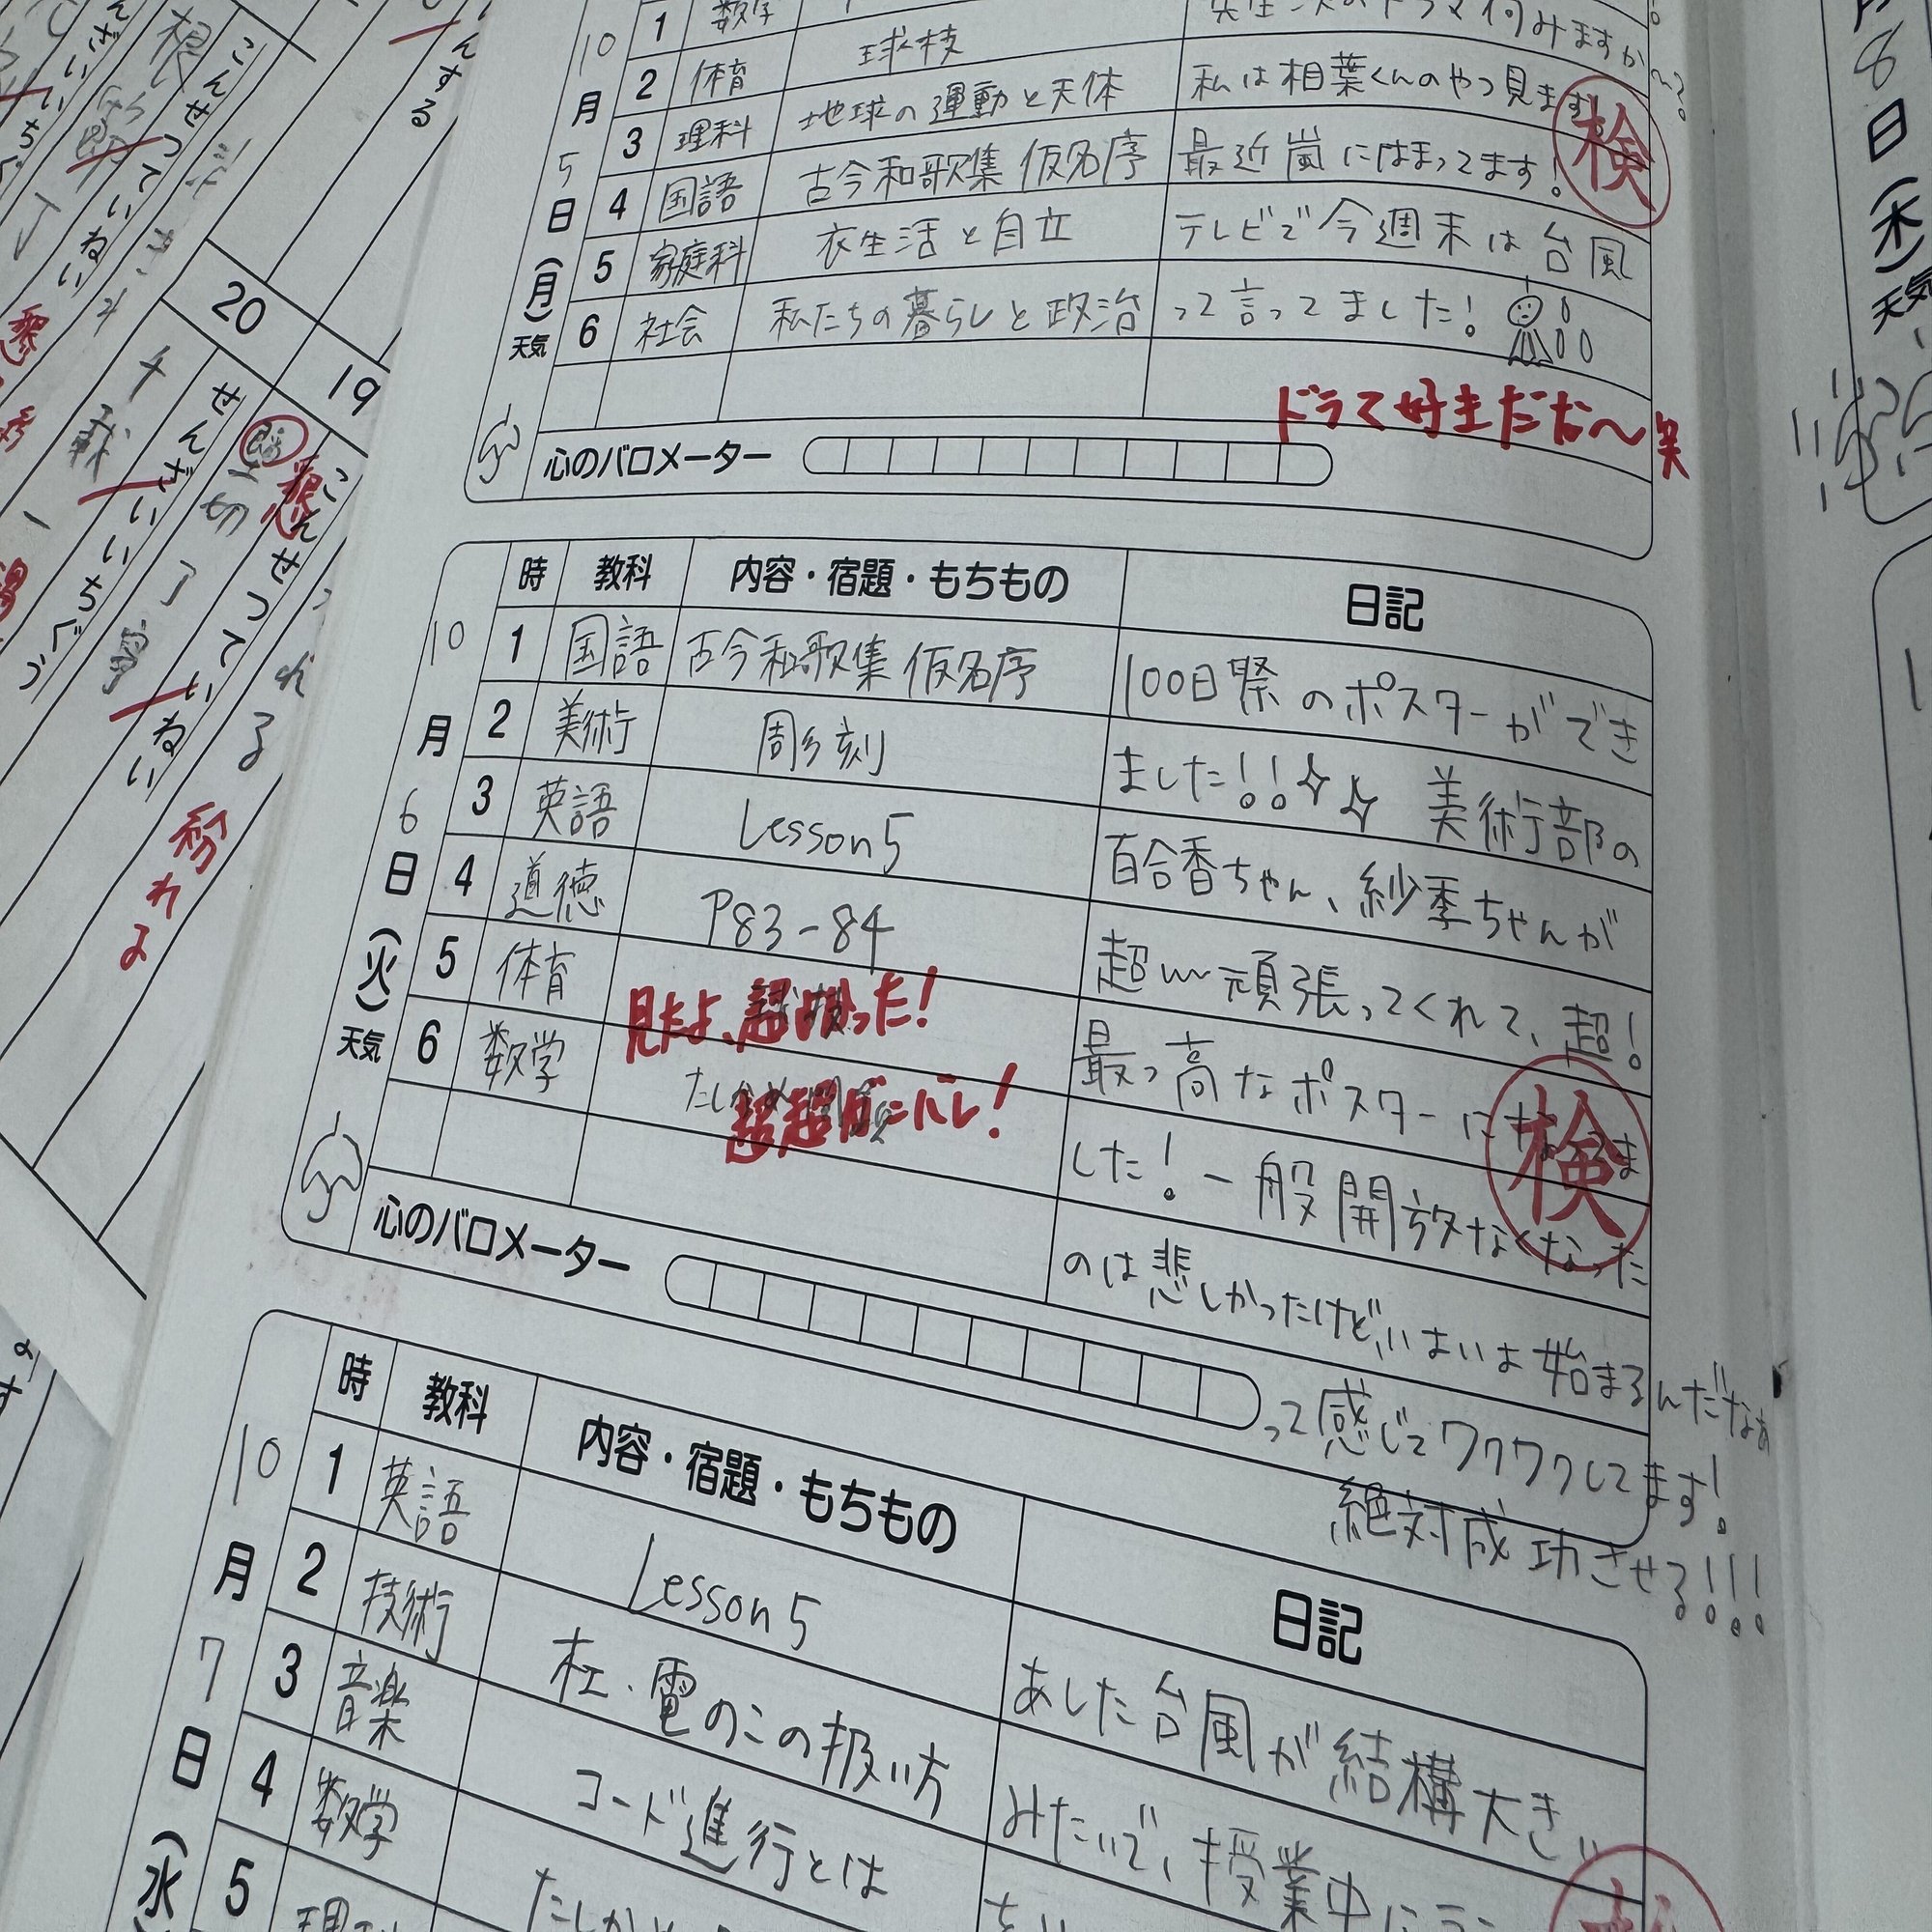 10月5日(月)天気
1 数学
2 体育 球技
3 理科 地球の運動と天体
4 国語 古今和歌集 仮名序
5 家庭科 衣生活と自立
6 社会 私たちの暮らしと政治
何みますか
私は相葉くんのやつ見ます
最近嵐にはまってます!
テレビで今週末は台風
って言ってました!
検
ドラマ好きだな〜笑
心のバロメーター
時 教科 内容・宿題・もちもの 日記
10月6日(火)天気
1 国語 古今和歌集 仮名序
2 美術 周彡刻
3 英語 Lesson5
4 道徳 P83-84
5 体育 球技
6 数学 たしかめ問題
見たよ、超良かった!
超超ガンバレ!
100日祭のポスターができ
ました!!✧✧ 美術部の
百合香ちゃん、紗季ちゃんが
超〜頑張ってくれて、超!
最っ高なポスターになりま
した!一般開放なくなった
のは悲しかったけど、いよいよ始まるんだなぁ
って感じてワクワクしてます!
絶対成功させる!!!
検
心のバロメーター
時 教科 内容・宿題・もちもの 日記
10月7日(水)
1 英語 Lesson5
2 技術
3 音楽 コード進行とは
4 数学
5
あした台風が結構大きい
みたいで、授業中に
8日(木)天気
20
せんざいいちぐう
19
こんせつていねい
懇
紛れる